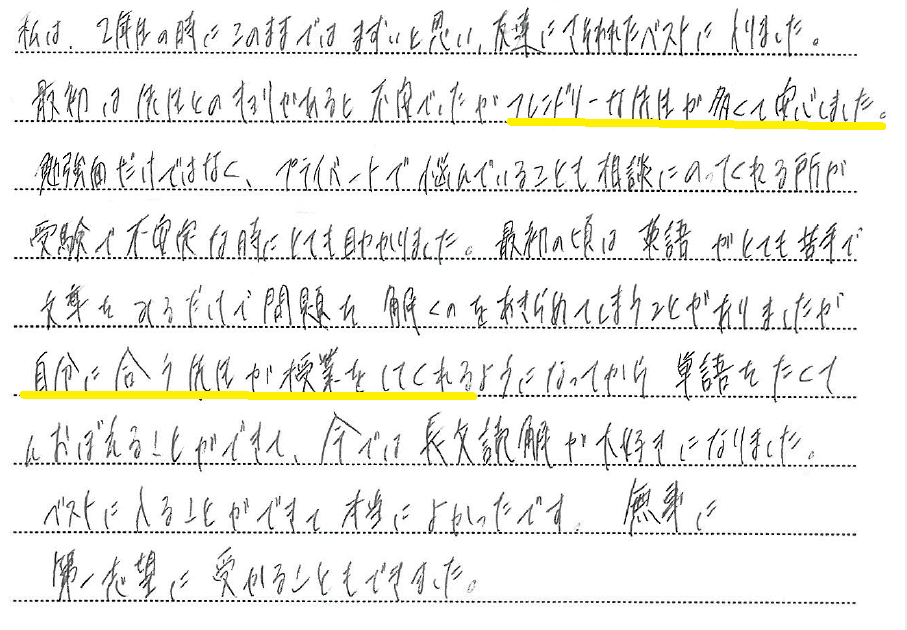 私は、2年生の時にこのままではまずいと思い、友達にさそわれたベストに入りました。
最初は先生との相性があると不安でしたがフレンドリーな先生が多くて安心しました。
勉強面だけではなく、プライベートで悩んでいることも相談にのってくれる所が
受験で不安定な時にとても助かりました。最初の頃は英語がとても苦手で
文章をみるだけで問題を解くのをあきらめてしまうことがありましたが
自分に合う先生が授業をしてくれるようになってから単語をたくさ
んおぼえることができて、今では長文読解が大好きになりました。
ベストに入ることができて本当によかったです。無事に
第一志望に受かることもできました。